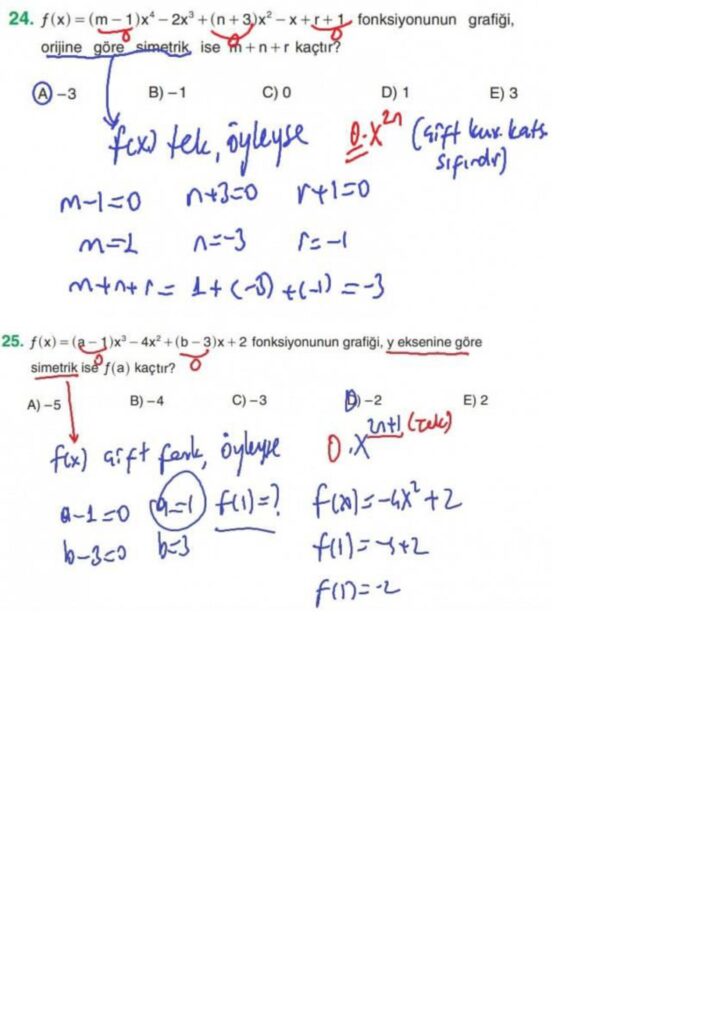 24. f(x) = (m – 1)x⁴ – 2x³ + (n + 3)x² – x + r + 1 fonksiyonunun grafiği,
0 0 0
orijine göre simetrik ise m + n + r kaçtır?
A) –3 B) –1 C) 0 D) 1 E) 3
f(x) tek, öyleyse 0·x²ⁿ (çift kuv. kats.
sıfırdır)
m–1=0 n+3=0 r+1=0
m=1 n=–3 r=–1
m+n+r= 1+(–3)+(–1)=–3
25. f(x) = (a – 1)x³ – 4x² + (b – 3)x + 2 fonksiyonunun grafiği, y eksenine göre
0 0
simetrik ise f(a) kaçtır?
A) –5 B) –4 C) –3 D) –2 E) 2
f(x) çift fonk, öyleyse 0·x²ⁿ⁺¹ (Tek)
a–1=0 a=1 f(1)=? f(x)=–4x²+2
b–3=0 b=3 f(1)=–4+2
f(1)=–2